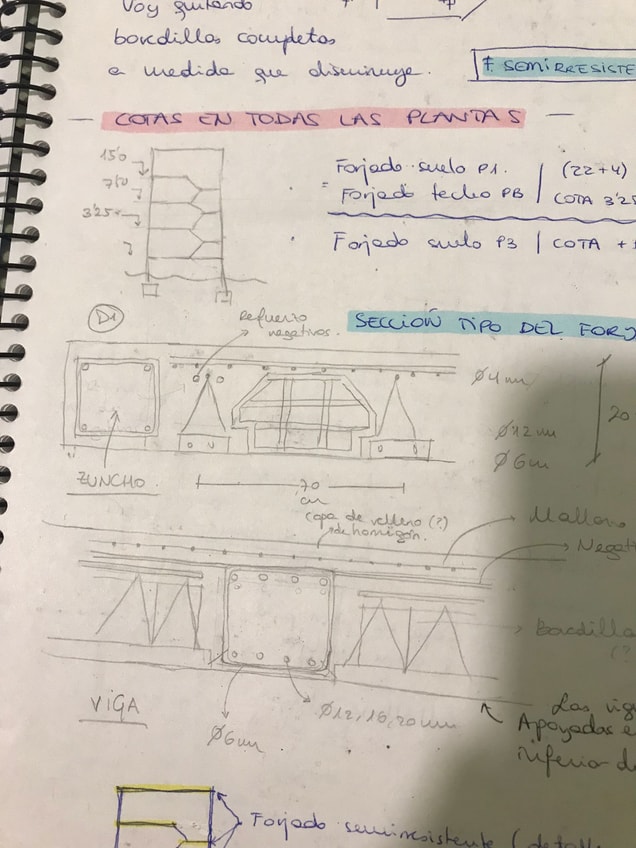 Voy quitando
bovedillas completas
a medida que disminuye.
SEMIRRESISTE
— COTAS EN TODAS LAS PLANTAS —
15'0
7'0
3'25
Forjado suelo P1. | (22+4)
= Forjado techo PB | COTA 3'25
Forjado suelo P3 | COTA +
D1
Refuerzo
negativos.
SECCIÓN TIPO DEL FORJ
Ø4mm
Ø12mm
Ø6mm
20
ZUNCHO.
70
cm
capa de relleno (?)
de hormigón.
Mallazo
Negat
Bovedilla
(?)
VIGA
Ø6mm
Ø12,16,20mm
Las vig
Apoyadas e
inferior de
Forjado semirresistente (detalle